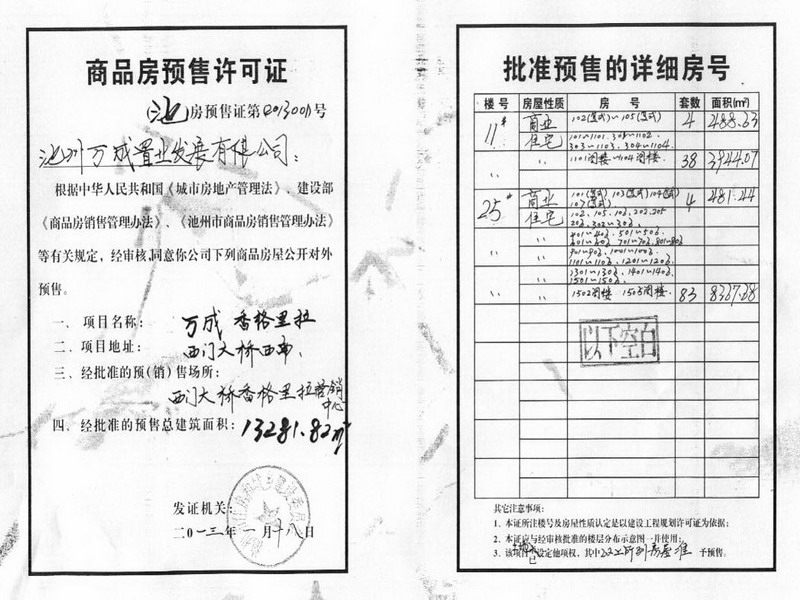 商品房预售许可证
(池)房预售证第2013001号
池州万成置业发展有限公司:
根据中华人民共和国《城市房地产管理法》、建设部
《商品房销售管理办法》、《池州市商品房销售管理办法》
等有关规定,经审核,同意你公司下列商品房屋公开对外
预售。
一、项目名称: 万成 香格里拉
二、项目地址: 西门大桥西南、
三、经批准的预(销)售场所:
西门大桥香格里拉营销
中心
四、经批准的预售总建筑面积:13281.82㎡
发证机关:
二〇一三年一月十八日
批准预售的详细房号
楼号 房屋性质 房号 套数 面积(㎡)
11# 商业 102(复式)~105(复式) 4 488.33
住宅 101~1101. 302~1102.
303~1103. 304~1104
〃 1101阁楼~1104阁楼 38 3944.07
25# 商业 101(复式) 103(复式) 104(复式) 4 481.44
107(复式)
住宅 102、105、106、202、205
206、302~306、
〃 401~406. 501~506.
601~606 701~706. 801~806
〃 901~906、1001~1006、
1101~1106、1201~1206、
〃 1301~1306、1401~1406、
1501~1506、
〃 1502阁楼 1505阁楼 83 8367.38
以下空白
其它注意事项:
1、本证所注楼号及房屋性质认定是以建设工程规划许可证为依据;
2、本证应与经审核批准的楼层分布示意图一并使用;
3、该项目 已设定他项权,其中 以上所列房屋准 予预售。